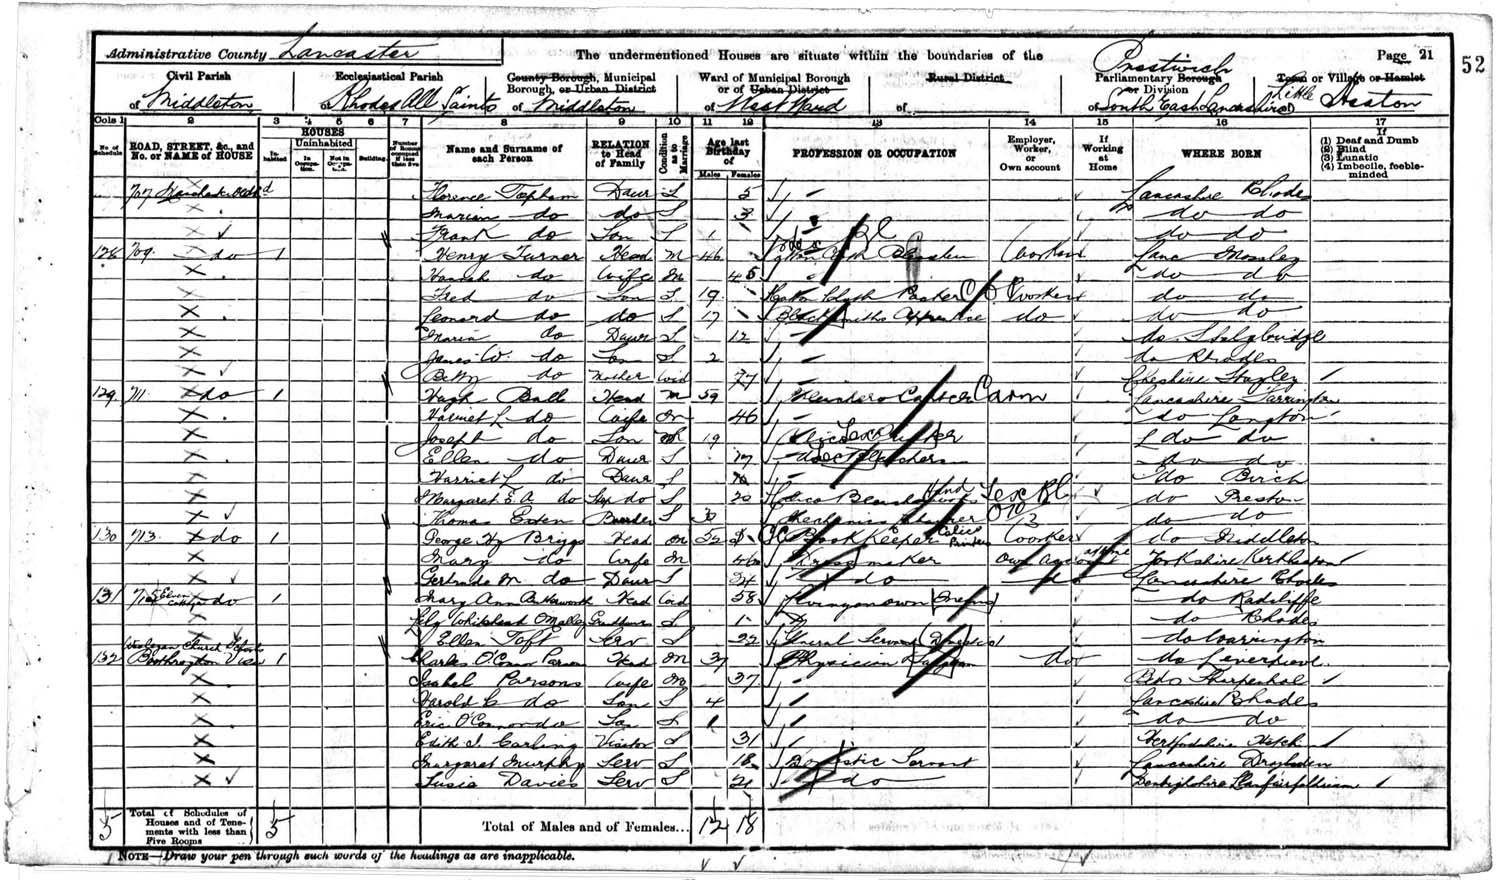 Administrative County Lancaster
The undermentioned Houses are situate within the boundaries of the
Page 21
52
Civil Parish of Middleton
Ecclesiastical Parish of Rhodes All Saints
County Borough, Municipal Borough, or Urban District of Middleton
Ward of Municipal Borough or of Urban District of West Ward
Rural District of
Prestwich
Parliamentary Borough or Division of South East Lancashire
Town or Village or Hamlet of Little Heaton
Cols 1 2 3 4 5 6 7 8 9 10 11 12 13 14 15 16 17
No. of Schedule
ROAD, STREET, &c., and No. or NAME of HOUSE
HOUSES
Inhabited
Uninhabited
In Occupation.
Not in Occupation.
Building.
Number of Rooms occupied if less than five
Name and Surname of each Person
RELATION to Head of Family
Condition as to Marriage
Age last Birthday of
Males Females
PROFESSION OR OCCUPATION
Employer, Worker, or Own account
If Working at Home
WHERE BORN
If (1) Deaf and Dumb (2) Blind (3) Lunatic (4) Imbecile, feeble-minded
707 Florence Topham Daur S 5 Lancashire Rhodes
Marian do do S 3 do do
Frank do Son S 1 do do
128 709 do 1 Henry Turner Head M 46 Worker Lanc Mossley
Hannah do Wife M 45 do do
Fred do Son S 19 Cloth Packer Worker do do
Leonard do do S 17 Blacksmiths Apprentice do do do
Maria do Daur S 12 do Stalybridge
James W. do Son S 2 do Rhodes
Betty do Mother Wid 77 Cheshire Stayley
129 711 do 1 Hugh Ball Head M 59 Lancashire
Harriet L do Wife M 46 do
Joseph do Son 19 L do do
Ellen do Daur S 17 do do
Harriet L do Daur S do Birch
Margaret E. A. do do S 20 do Preston
Thomas Boarder S 30 do do
130 713 do 1 George Hy Briggs Head M 52 Book Keeper Calico Printers Worker do Middleton
Mary do Wife M 46 Dress maker Own account at home Yorkshire
Gertrude M do Daur S 24 do do Lancashire Rhodes
131 715 do 1 Mary Ann Butterworth Head Wid 58 Living on own means do Radcliffe
Lily Whitehead O'Malley S 1 do Rhodes
Ellen Toft Serv S 22 General Servant (Domestic) do Warrington
Wesleyan Church
132 1 Charles O'Connor Parsons Head M 37 Physician Surgeon do do Liverpool
Isabel Parsons Wife M 37 Beds
Harold C do Son S 4 Lancashire Rhodes
Eric O'Connor do Son S 1 do do
Edith J. Carling Visitor S 31 Hertfordshire
Margaret Murphy Serv S 18 Domestic Servant Lancashire Droylsden
Susie Davies Serv S 21 do Denbighshire
5 Total of Schedules of Houses and of Tenements with less than Five Rooms 5
Total of Males and of Females... 12 18
NOTE—Draw your pen through such words of the headings as are inapplicable.